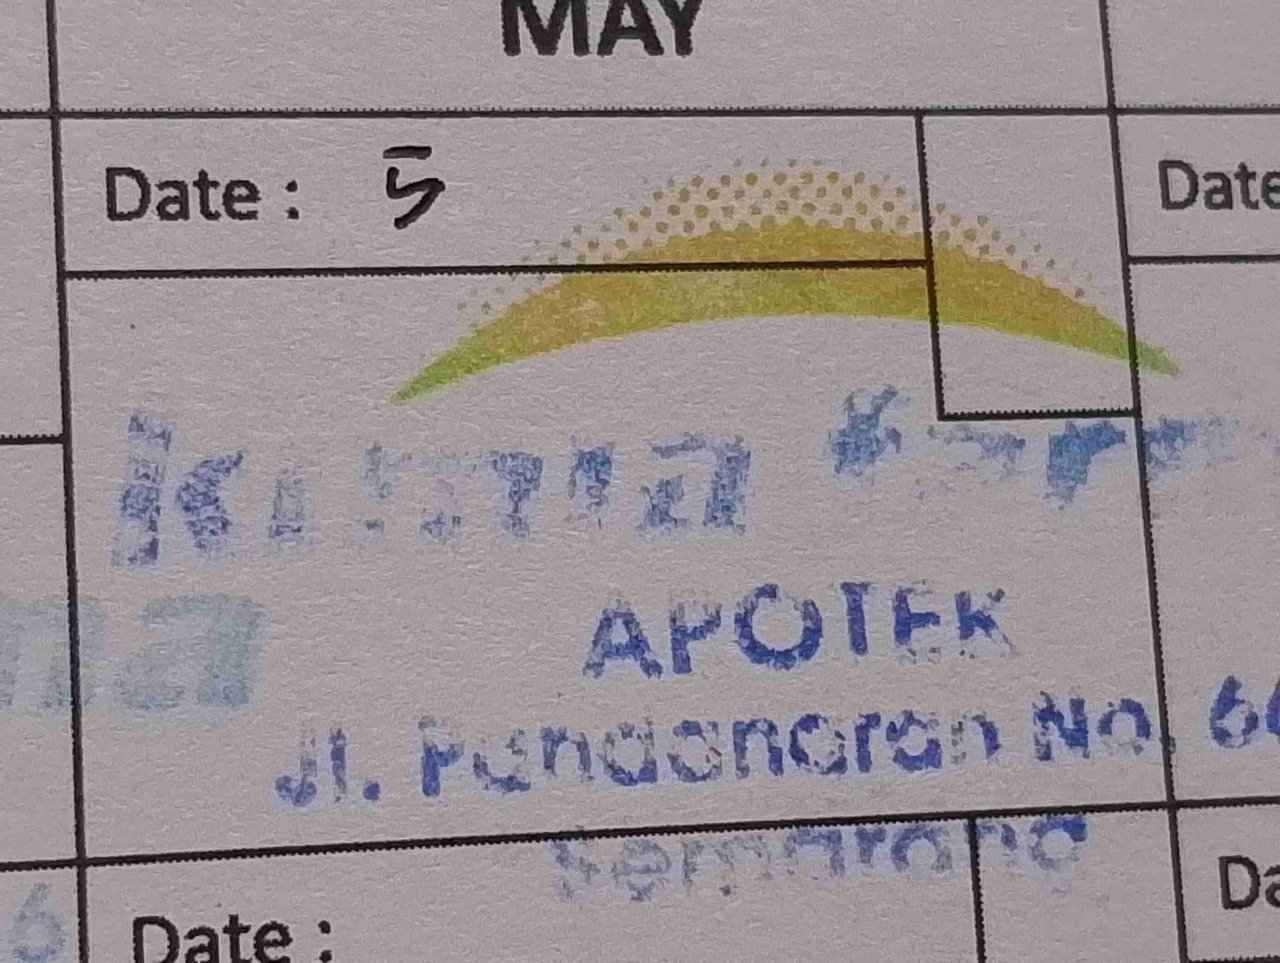 MAY
Date : 5
Date
kimia
APOTEK
Jl. Pandanaran No. 66
Semarang
ma
6
Date :
Da